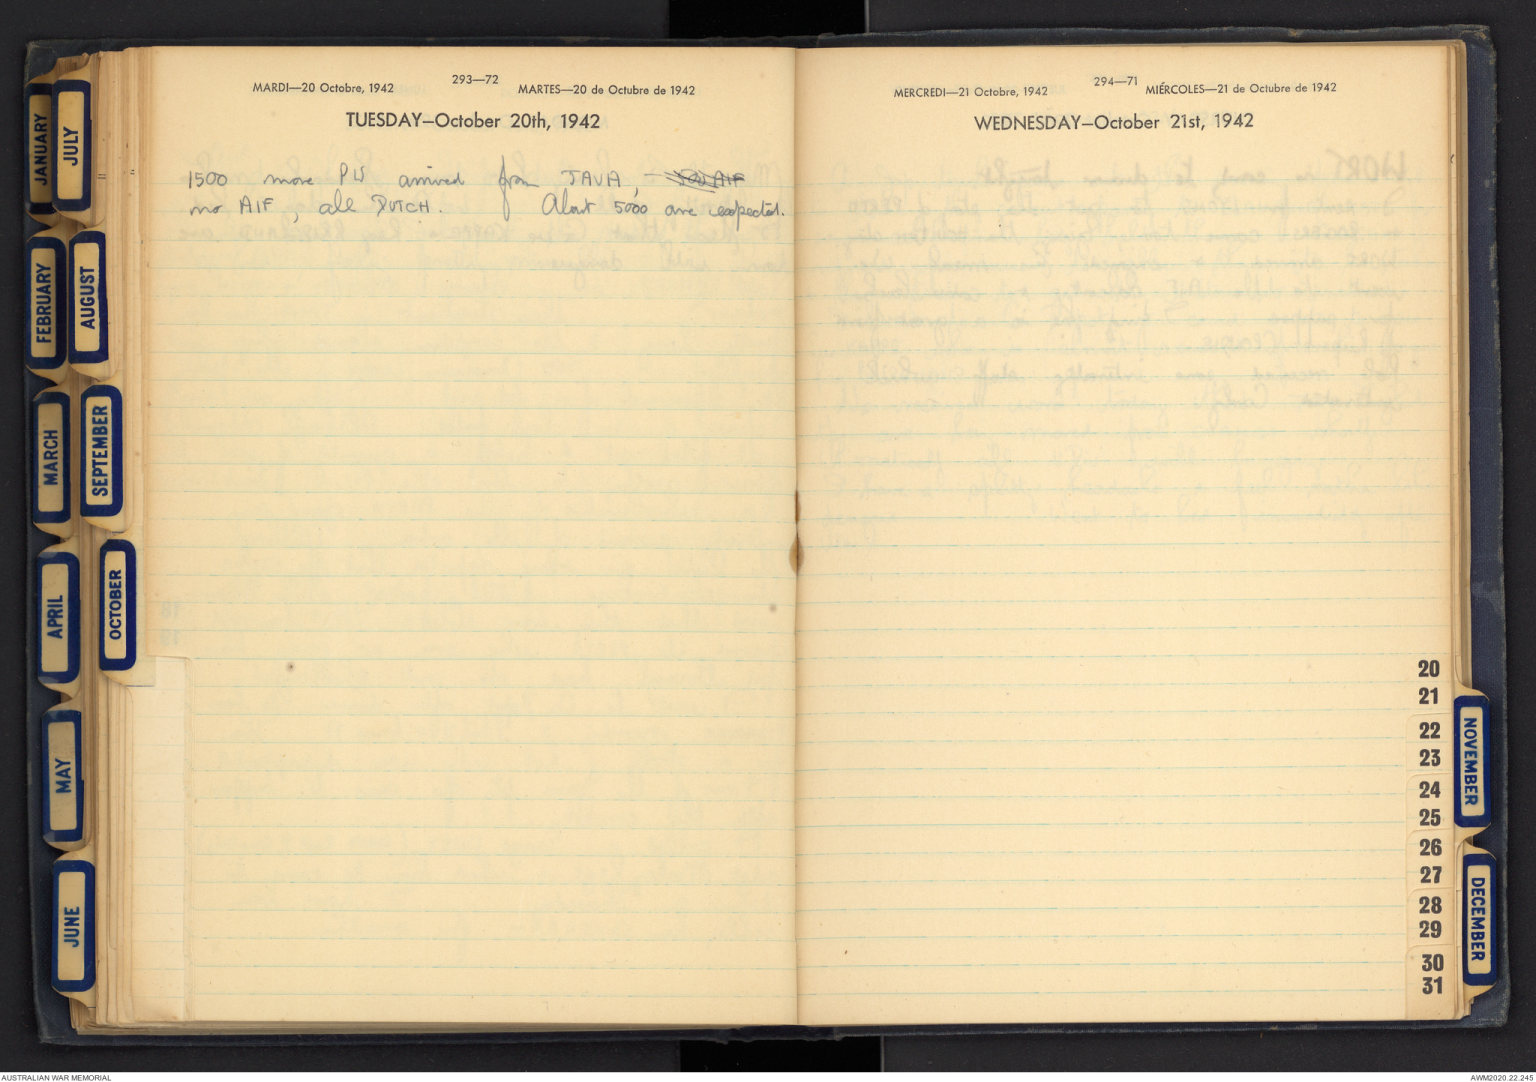 MARDI—20 Octobre, 1942
293—72
MARTES—20 de Octubre de 1942
TUESDAY—October 20th, 1942
1500 more PW arrived from JAVA, —
no AIF, all DUTCH. About 5000 are expected.
MERCREDI—21 Octobre, 1942
294—71
MIÉRCOLES—21 de Octubre de 1942
WEDNESDAY—October 21st, 1942
JANUARY
JULY
FEBRUARY
AUGUST
MARCH
SEPTEMBER
APRIL
OCTOBER
MAY
JUNE
20
21
22
23
24
25
26
27
28
29
30
31
NOVEMBER
DECEMBER
AUSTRALIAN WAR MEMORIAL
AWM2020.22.245